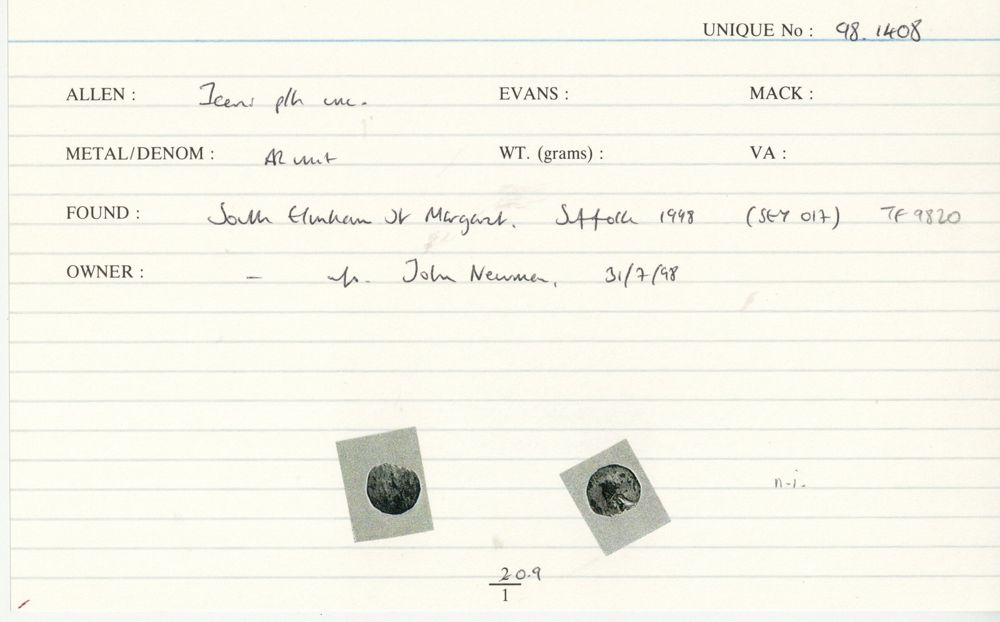 UNIQUE No : 98.1408
ALLEN : Iceni plh unc. EVANS : MACK :
METAL/DENOM : AR unit WT. (grams) : VA :
FOUND : South Elmham St Margaret. Suffolk 1998 (SEY 017) TF 9820
OWNER : – John Newman, 31/7/98
n.i.
20.9
1